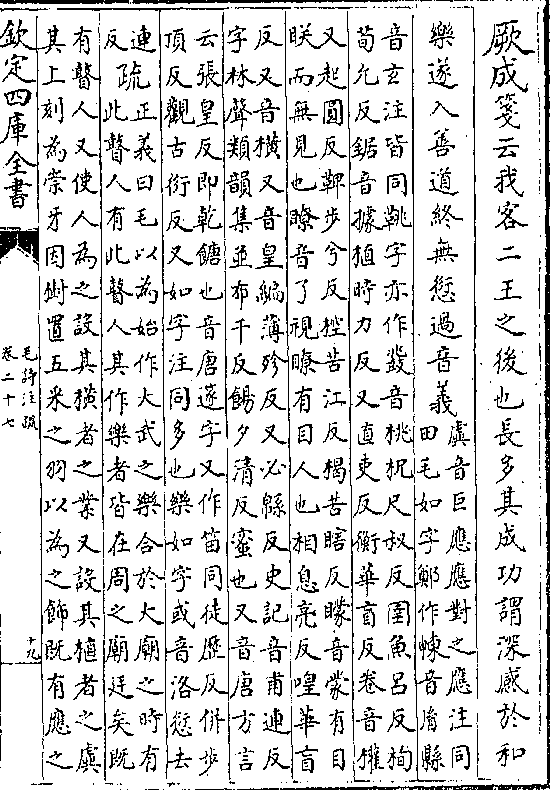 厥成箋云我客二王之後也長多其成功謂深感於和
樂遂入善道終無愆過音義
虡音巨應應對之應注同
田毛如字鄭作音胤縣
音玄注皆同鞉字亦作鼗音桃柷尺叔反圉魚呂反栒
荀允反鋸音據植時力反又直吏反衡華盲反卷音權
又起圓反鞞步兮反椌苦江反楬苦瞎反矇音蒙有目
眹而無見也瞭音了視瞭有目人也相息亮反喤華盲
反又音橫又音皇編薄殄反又必緜反史記音甫連反
字林聲類韻集並布千反餳夕清反蜜也又音唐方言
云張皇反即乾餹也音唐篴字又作笛同徒歷反併步
頂反觀古衒反又如字注同多也樂如字或音洛愆去
連疏正義曰毛以為始作大武之樂合於大廟之時有
反此瞽人有此瞽人其作樂者皆在周之廟廷矣既
有瞽人又使人為之設其橫者之業又設其植者之虡
其上刻為崇牙因樹置五采之羽以為之飾既有應之
欽定四庫全書
毛詩注疏
卷二十七
十九